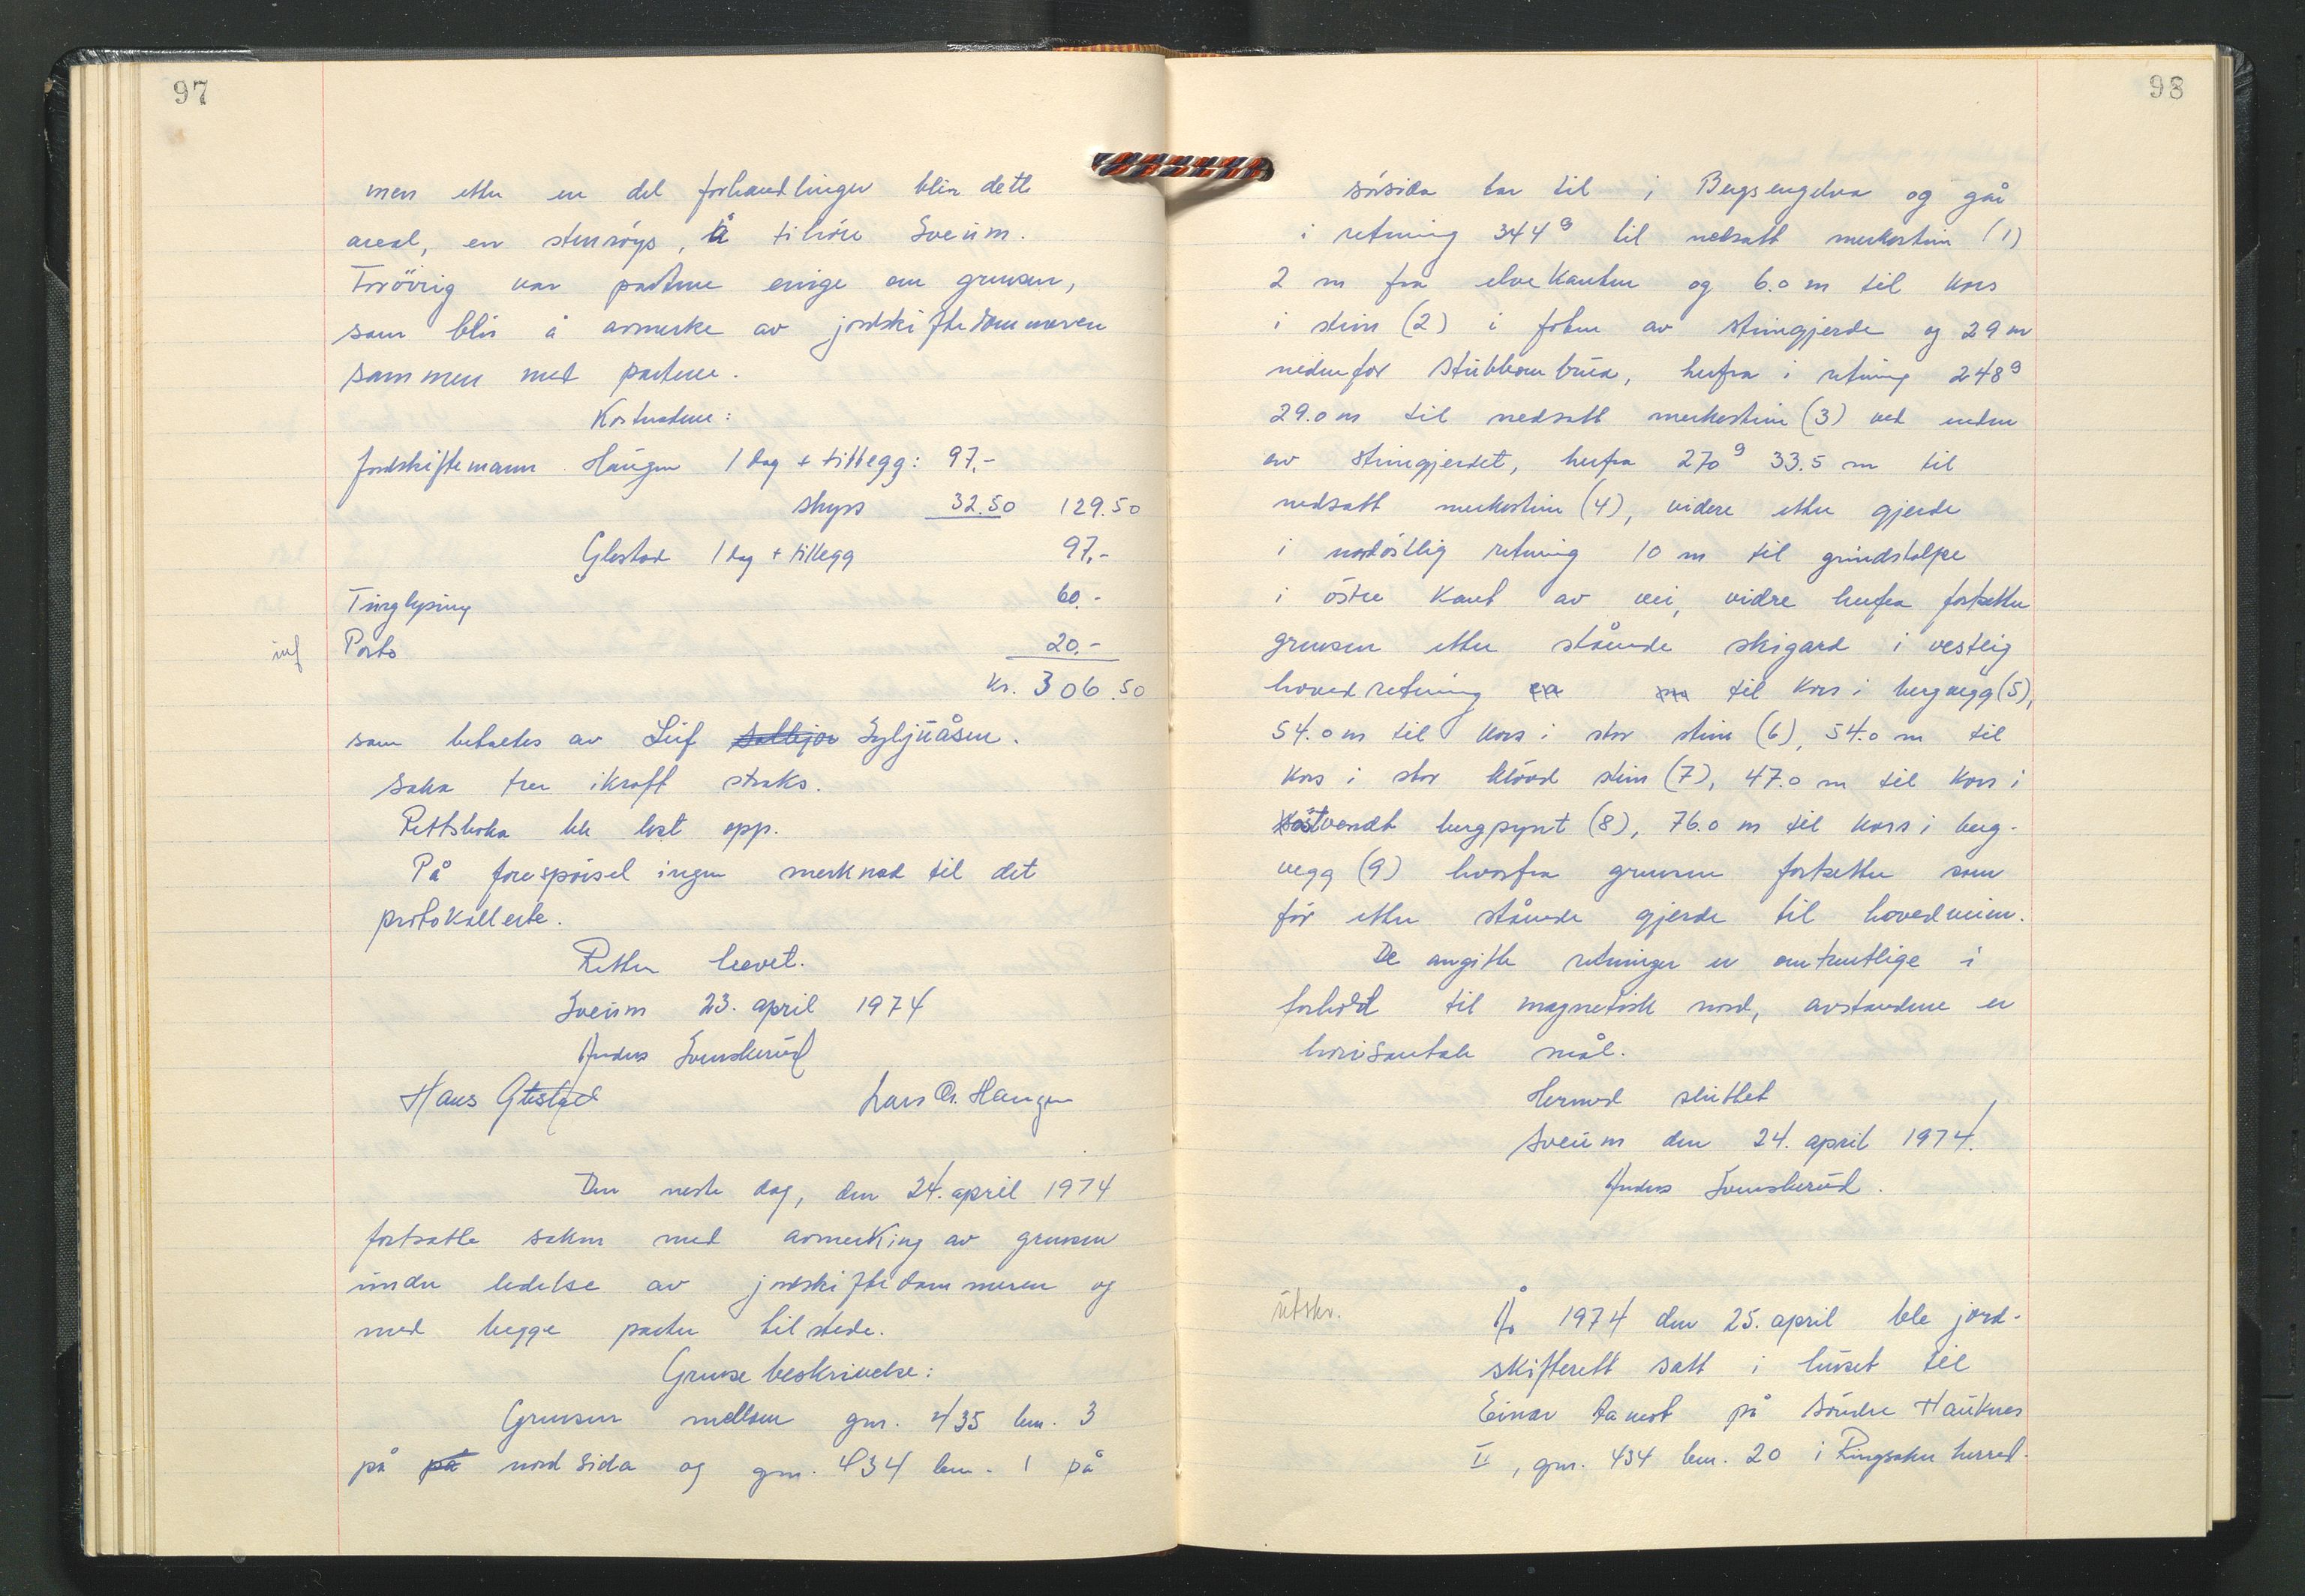 97
men etter en del forhandlinger blir dette
areal, en stenröys, å tilhöre Sveum.
Forövrig var partene enige om grensen,
som blir å avmerke av jordskiftedommeren
sammen med partene.
Kostnadene:
Jordskiftemann Haugen 1 dag + tillegg: 97,-
skyss 32.50 129.50
Glestad 1 dag + tillegg 97,-
Tinglysing 60.-
inf Porto 20,-
kr. 306.50
som betaltes av Leif Syljuåsen.
Saka trer ikraft straks.
Rettsboka ble lest opp.
På forespörsel ingen merknad til det
protokollerte.
Retten hevet.
Sveum 23. april 1974
Anders Svenskerud
Hans Glestad Lars Chr. Haugen
Den neste dag, den 24. april 1974
fortsatte saken med avmerking av grensen
under ledelse av jordskiftedommeren og
med begge parter tilstede.
Grensebeskrivelse:
Grensen mellom gnr. 435 bnr. 3
på på nordsida og gnr. 434 bnr. 1 på
98
sörsida tar til i Bergsengelva og går
i retning 344 g til nedsatt merkestein (1)
2 m fra elvekanten og 6.0 m til kors
i stein (2) i foten av steingjerde og 29 m
nedenfor Stubbombrua, herfra i retning 248 g
29.0 m til nedsatt merkestein (3) ved enden
av steingjerdet, herfra 270 g 33.5 m til
nedsatt merkestein (4), videre etter gjerde
i nordöstlig retning 10 m til grindstolpe
i östre kant av vei, vidre herfra fortsetter
grensen etter stående skigard i vestlig
hovedretning ca m til kors i bergvegg (5),
54.0 m til kors i stor stein (6), 54.0 m til
kors i stor klövd stein (7), 47.0 m til kors i
östvendt bergpynt (8), 76.0 m til kors i berg-
vegg (9) hvorfra grensen fortsetter som
för etter stående gjerde til hovedveien.
De angitte retninger er omtrentlige i
forhold til magnetisk nord, avstandene er
horisontale mål.
Hermed sluttet
Sveum den 24. april 1974.
Anders Svenskerud.
utskr. År 1974 den 25. april ble jord-
skifterett satt i huset til
Einar Aamot på Söndre Hauknes
II, gnr. 434 bnr. 20 i Ringsaker herred.